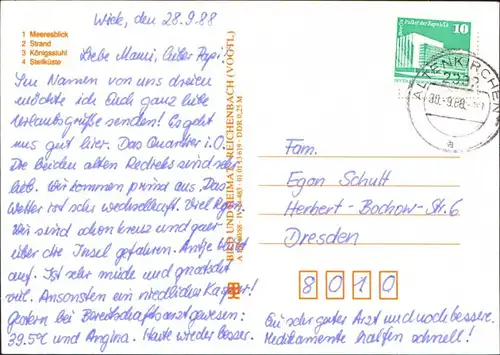 Wiek, den 28.9.88
1 Meeresblick
2 Strand
3 Königsstuhl
4 Steilküste
Liebe Mami, lieber Papi!
Im Namen von uns dreien
möchte ich Euch ganz liebe
Urlaubsgrüße senden! Es geht
uns gut hier. Das Quartier i.O.
Die beiden alten Redieks sind sehr
lieb. Wir kommen prima aus. Das
Wetter ist sehr wechselhaft. Viel Regen.
Wir sind schon kreuz und quer
über die Insel gefahren. Antje
auf. Ist sehr müde und gnatscht
viel. Ansonsten ein niedlicher Kasper!
Gestern bei Bereitschaftsarzt gewesen:
39.5°C und Angina. Heute wieder besser.
BILD UND HEIMAT REICHENBACH (VOGTL)
01 01 13 619 DDR 0,25 M
10
ALTENKIRCHEN
2337
30.-9.88.
a
Fam.
Egon Schutt
Herbert-Bochow-Str. 6
Dresden
8010
Ein sehr guter Arzt und noch bessere
Medikamente halfen schnell!